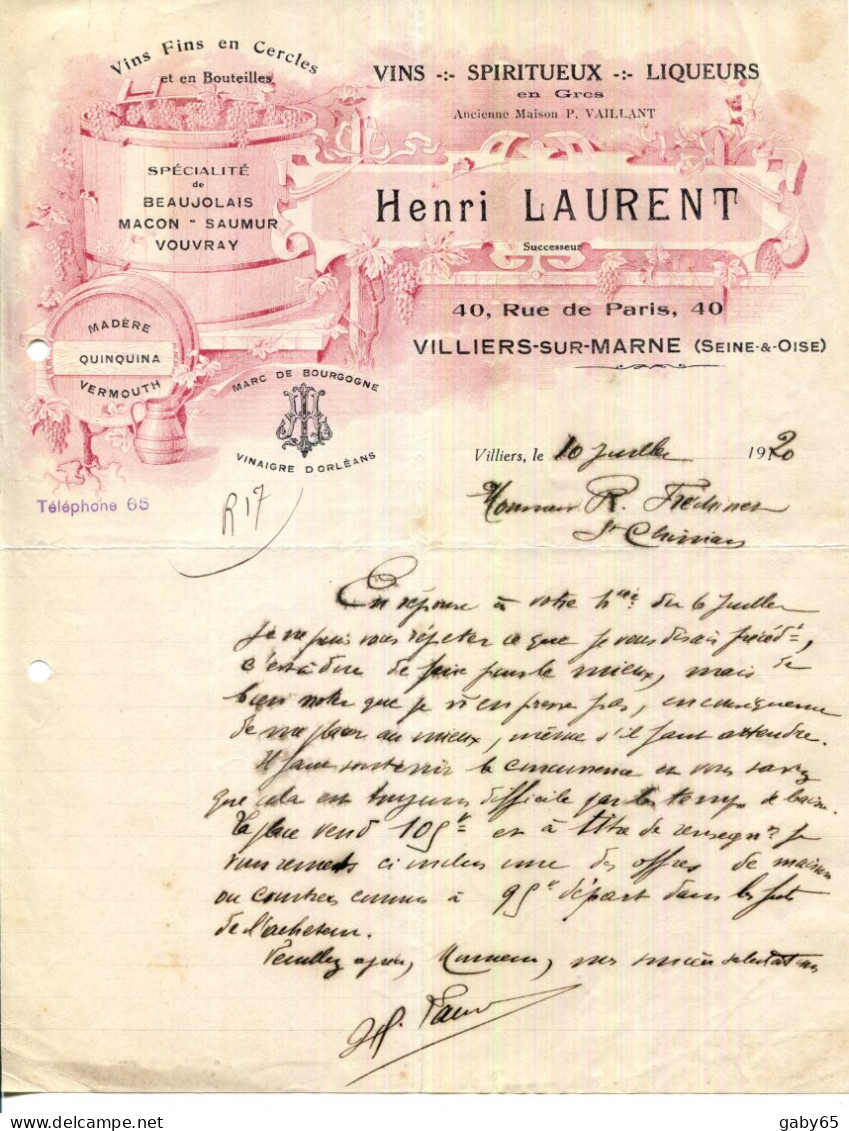 Vins Fins en Cercles
et en Bouteilles
VINS -:- SPIRITUEUX -:- LIQUEURS
en Gros
Ancienne Maison P. VAILLANT
SPÉCIALITÉ
de
BEAUJOLAIS
MACON - SAUMUR
VOUVRAY
Henri LAURENT
Successeur
40, Rue de Paris, 40
VILLIERS-SUR-MARNE (SEINE-&-OISE)
MADÈRE
QUINQUINA
VERMOUTH
MARC DE BOURGOGNE
VINAIGRE D'ORLÉANS
Téléphone 65
R17
Villiers, le 10 Juillet 1920
Monsieur R. Fréchinet
St Chinian
En réponse à votre du 6 Juillet
je ne puis vous répéter ce que je vous disais précédt,
c'est à dire de faire pour le mieux, mais de
bien noter que je n'en presse pas, en conséquence
de me placer au mieux, même s'il faut attendre.
Il faut soutenir la concurrence et vous savez
que cela est toujours difficile par les temps de baisse.
La place vend 105 et à titre de renseignt je
vous remets ci inclus une des offres de maisons
ou courtiers connus à 95 départ dans les futs
de l'acheteur.
Veuillez agréer, Monsieur, mes sincères salutations
H. Laurent
gaby65